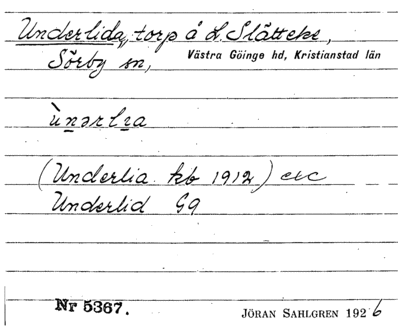 Underlida, torp å L. Slätteke,
Sörby sn, Västra Göinge hd, Kristianstad län
ùnərlıa
(Underlia kb 1912) etc
Underlid G9
Nr 5367. JÖRAN SAHLGREN 1926